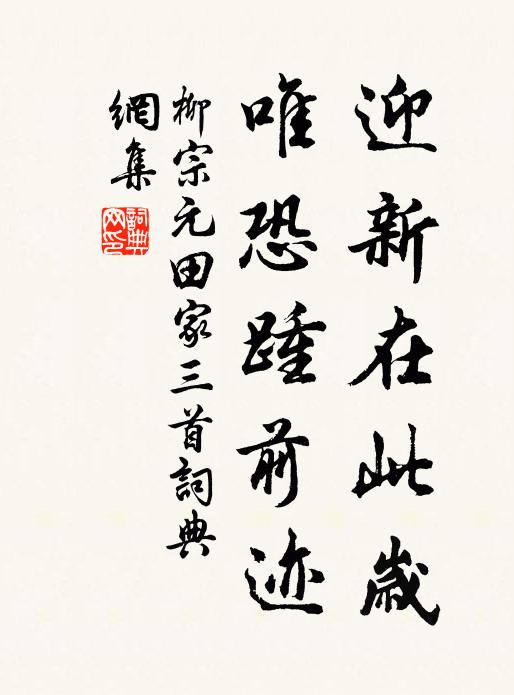 迎新在此歲
唯恐踵前迹
柳宗元田家三首詞典
網集
詞典
网印